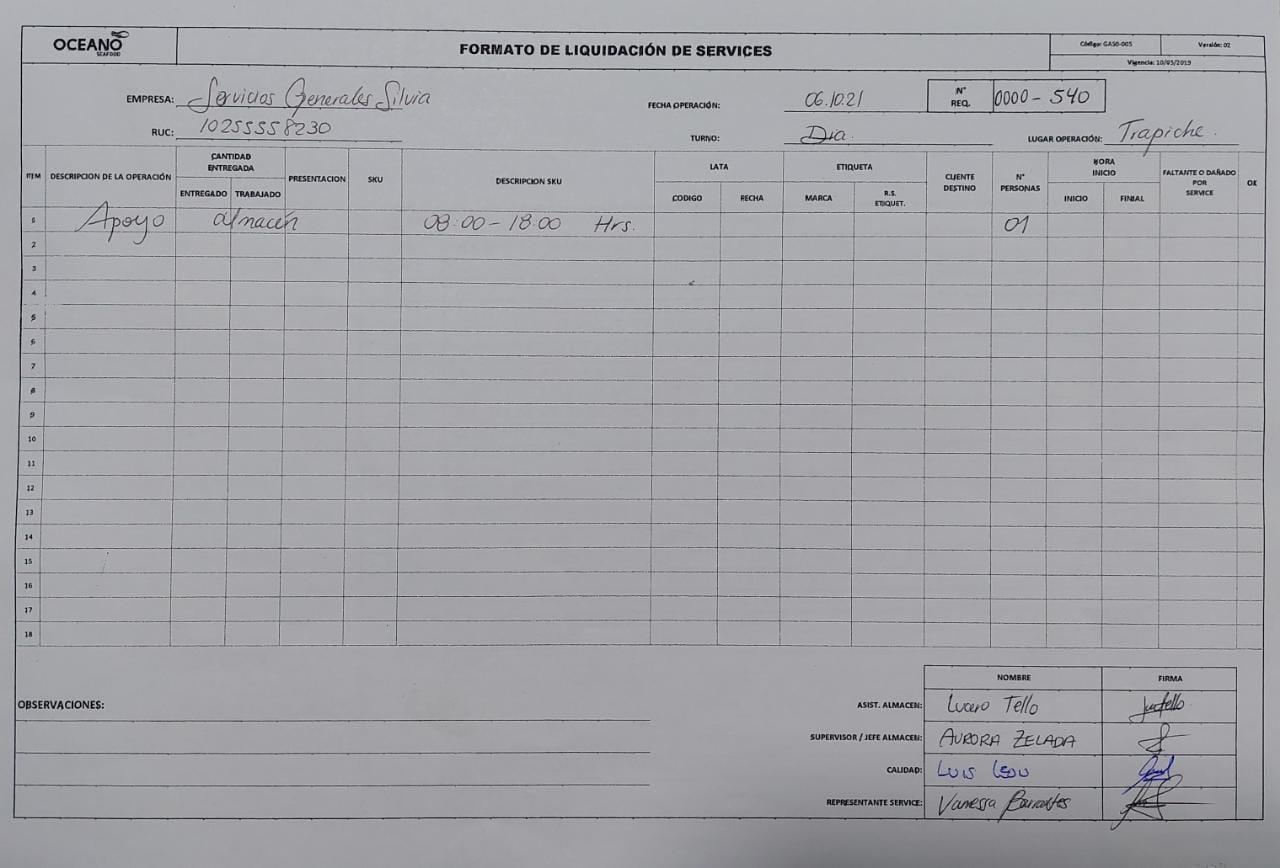 OCEANO
SEAFOOD
FORMATO DE LIQUIDACIÓN DE SERVICES
Código: GASG-005 Versión: 02
Vigencia: 10/05/2019
EMPRESA: Servicios Generales Silvia
FECHA OPERACIÓN: 06.10.21
N° REQ. 0000 - 540
RUC: 10255558230
TURNO: Dia.
LUGAR OPERACIÓN: Trapiche.
ITEM DESCRIPCION DE LA OPERACIÓN CANTIDAD ENTREGADA PRESENTACION SKU DESCRIPCION SKU LATA ETIQUETA CLIENTE DESTINO N° PERSONAS HORA INICIO FALTANTE O DAÑADO POR SERVICE OK
ENTREGADO TRABAJADO CODIGO FECHA MARCA R.S. ETIQUET. INICIO FINIAL
Apoyo almacén 08:00 - 18:00 Hrs. 01
2
3
4
5
6
7
8
9
10
11
12
13
14
15
16
17
18
NOMBRE FIRMA
OBSERVACIONES:
ASIST. ALMACEN: Lucero Tello
SUPERVISOR / JEFE ALMACEN: AURORA ZELADA
CALIDAD: Luis León
REPRESENTANTE SERVICE: Vanessa Barrantes